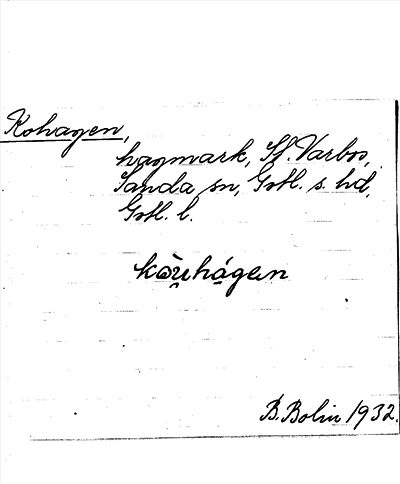 Kohagen,
hagmark, St. Varbos,
Sanda sn, Gotl. s. hd,
Gotl. l.
kòu̯hágen
B. Bolin 1932.